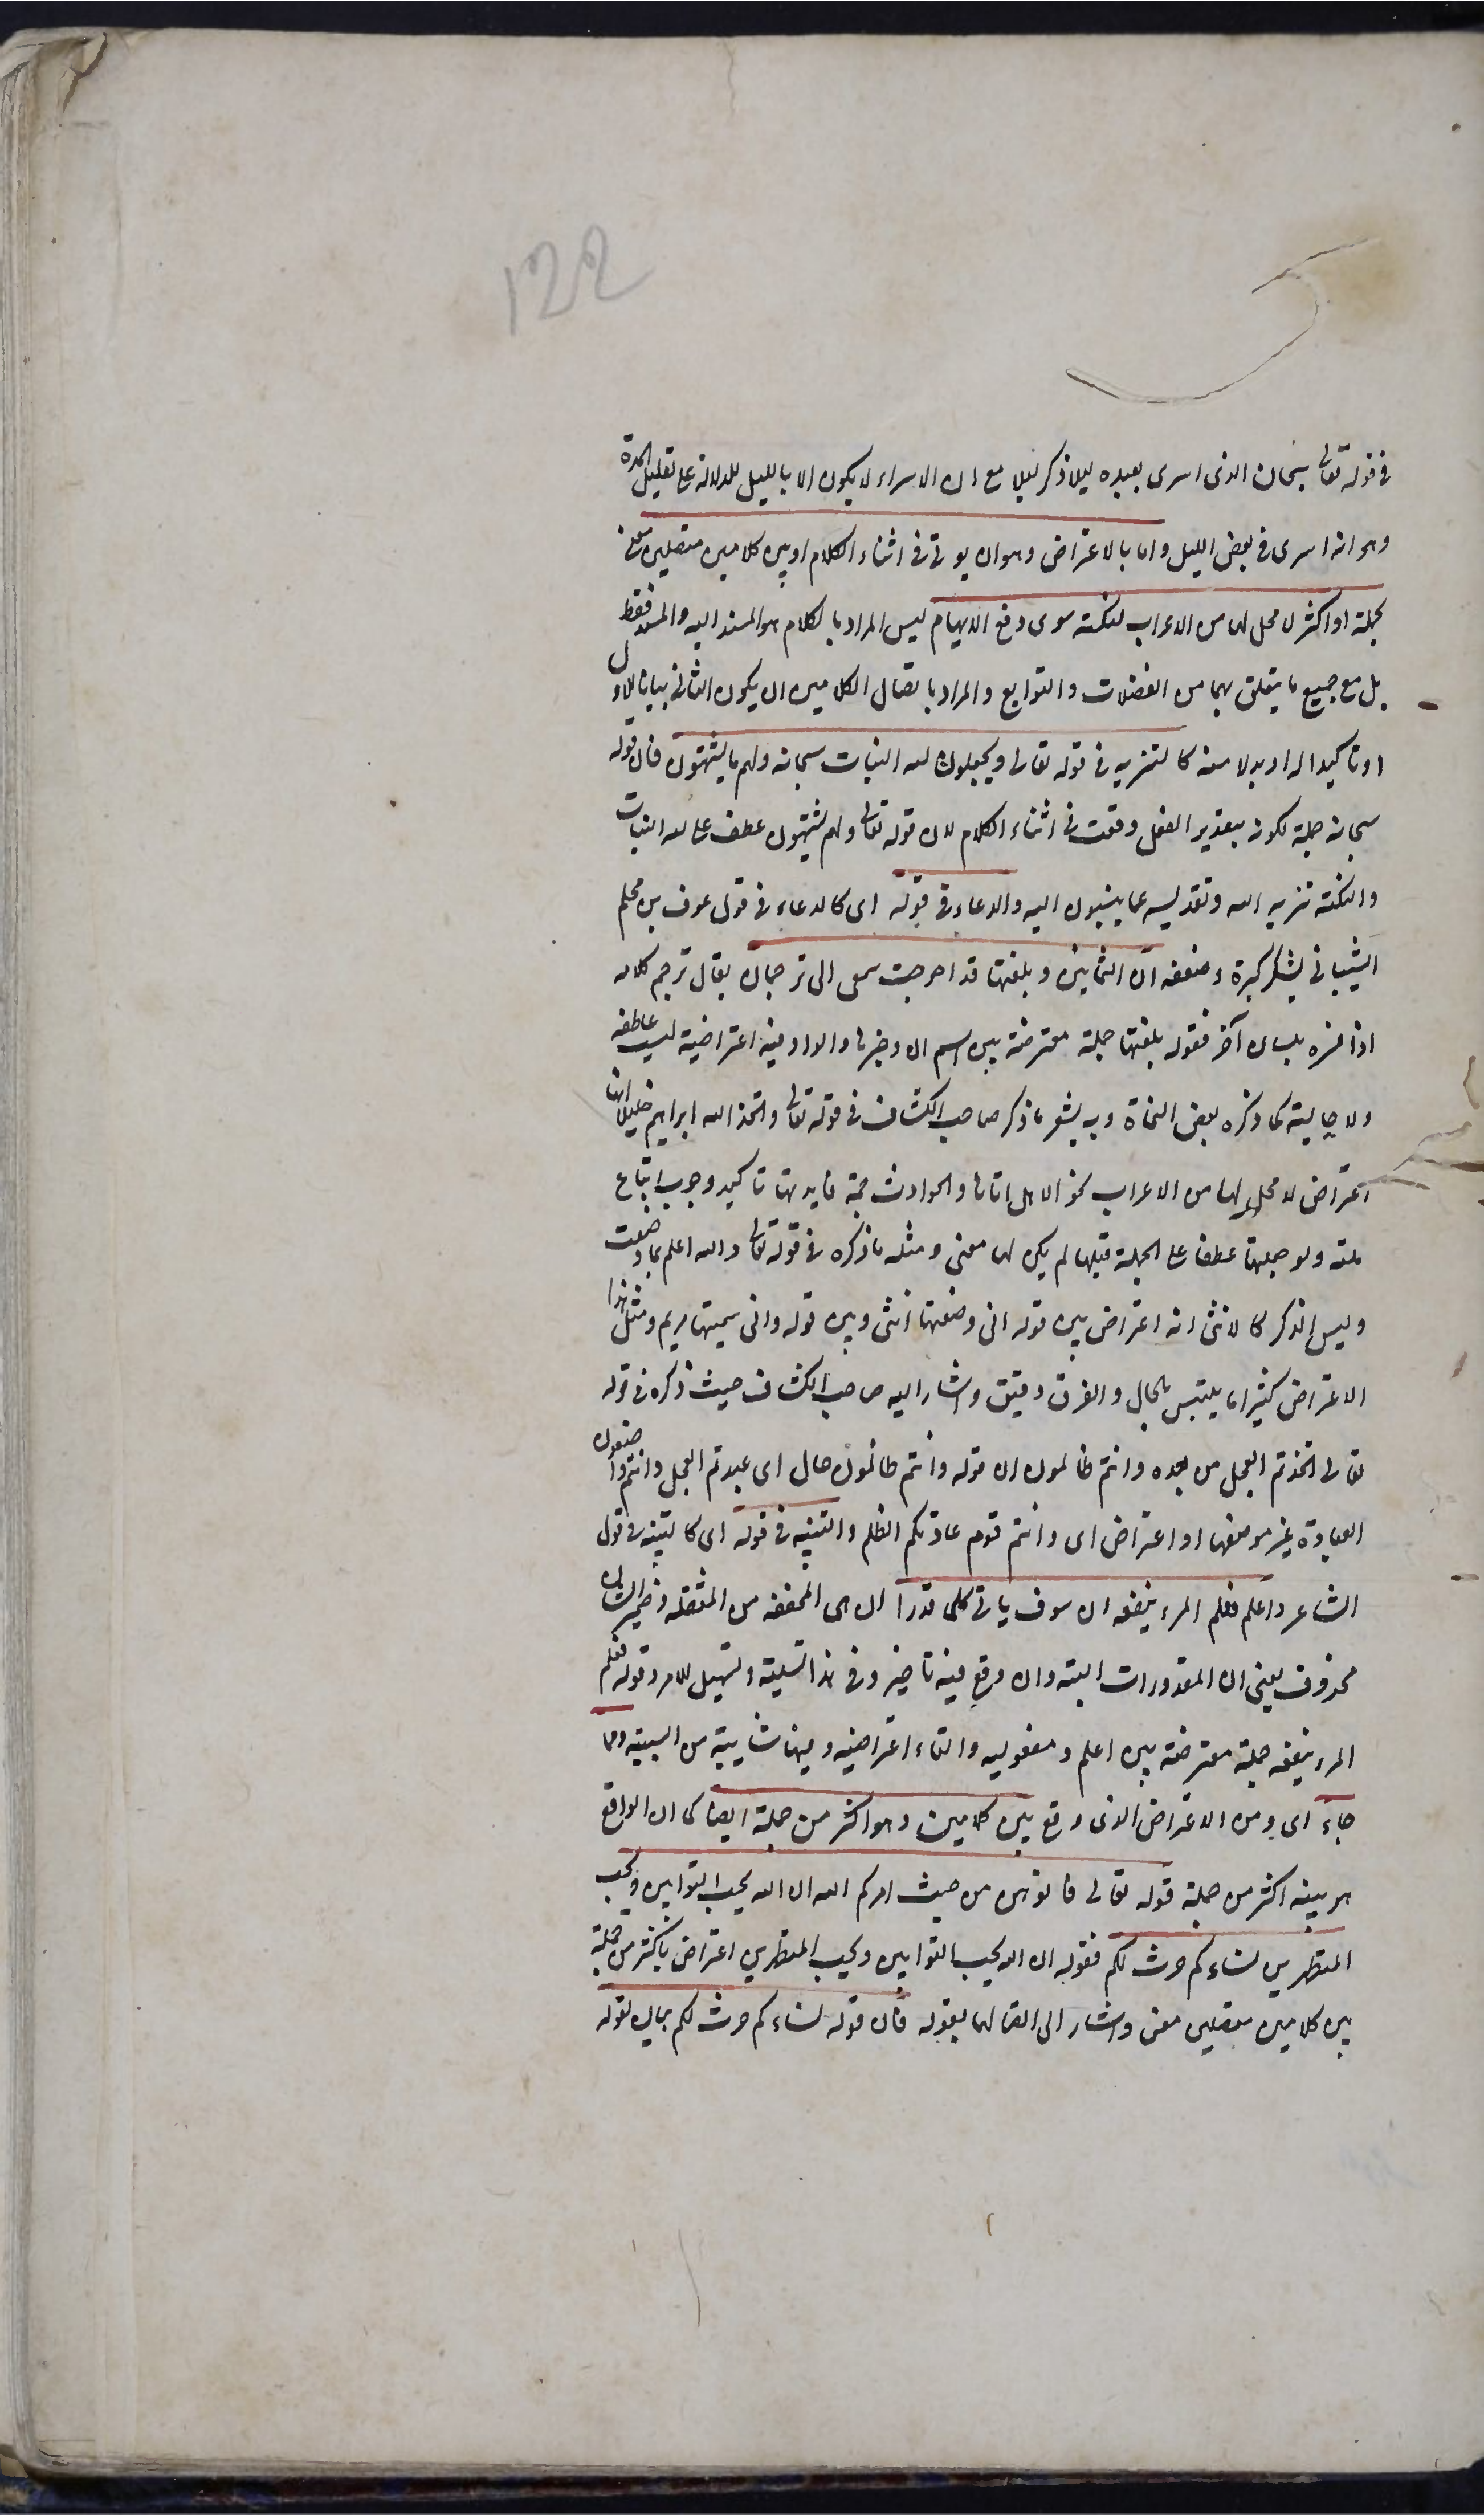 122
في قوله تعالى سبحان الذي اسرى بعبده ليلا ذكر ليلا مع ان الاسراء لا يكون الا بالليل للدلالة على تقليل المدة
وهو انه اسرى في بعض الليل واما بالاعتراض وهو ان يوتى في اثناء الكلام او بين كلامين متصلين معنى
بجملة او اكثر لا محل لها من الاعراب لنكتة سوى دفع الايهام ليس المراد بالكلام هو المسند اليه والمسند فقط
بل مع جميع ما يتعلق بهما من الفضلات والتوابع والمراد باتصال الكلامين ان يكون الثاني بيانا للاول
او تاكيدا له او بدلا منه كالتنزيه في قوله تعالى ويجعلون لله البنات سبحانه ولهم ما يشتهون فان قوله
سبحانه جملة لكونه بتقدير الفعل وقعت في اثناء الكلام لان قوله تعالى ولهم يشتهون عطف على لله البنات
والنكتة تنزيه الله وتقديسه عما ينسبون اليه والدعاء في قوله اى كالدعاء في قول عوف بن محلم
الشيباني يشكو كبره وضعفه ان الثمانين وبلغتها قد احوجت سمعى الى ترجمان يقال ترجم كلامه
اذا فسره بلسان آخر فقوله بلغتها جملة معترضة بين اسم ان وخبرها والواو فيه اعتراضية ليست عاطفه
ولا حالية كما ذكره بعض النحاة وبه يشعر ما ذكر صاحب الكشاف في قوله تعالى واتخذ الله ابراهيم خليلا انها
اعتراض لا محل لها من الاعراب نحو الا هل اتاها والحوادث جمة فايدتها تاكيد وجوب اتباع
ملته ولو جعلتها عطفا على الجملة قبلها لم يكن لها معنى ومثله ما ذكره في قوله تعالى والله اعلم بما وضعت
وليس الذكر كالانثى انه اعتراض بين قوله انى وضعتها انثى وبين قوله وانى سميتها مريم ومثل هذا
الاعتراض كثيرا ما يلتبس بالحال والفرق دقيق واشار اليه صاحب الكشاف حيث ذكره في قوله
تعالى اتخذتم العجل من بعده وانتم ظالمون ان قوله وانتم ظالمون حال اى عبدتم العجل وانتم واضعون
العبادة غير موضعها او اعتراض اى وانتم قوم عادتكم الظلم والتنبيه في قوله اى كالتنبيه في قول
الشاعر واعلم فعلم المرء ينفعه ان سوف ياتى كل ما قدرا ان هى المخففه من المثقله وضمير الشان
محذوف يعنى ان المقدورات البته وان وقع فيه تاخير وفي هذا تسلية وتسهيل للامر وقوله فعلم
المرء ينفعه جملة معترضة بين اعلم ومفعوليه والفاء اعتراضيه وفيها شايبة من السببيه ومما
جاء اى ومن الاعتراض الذى وقع بين كلامين وهو اكثر من جملة ايضا كما ان الواقع
هو بينه اكثر من جملة قوله تعالى فاتوهن من حيث امركم الله ان الله يحب التوابين ويحب
المتطهرين نساءكم حرث لكم فقوله ان الله يحب التوابين ويحب المتطهرين اعتراض باكثر من جملة
بين كلامين متصلين معنى واشار الى اتصالهما بقوله فان قوله نساءكم حرث لكم بيان لقوله